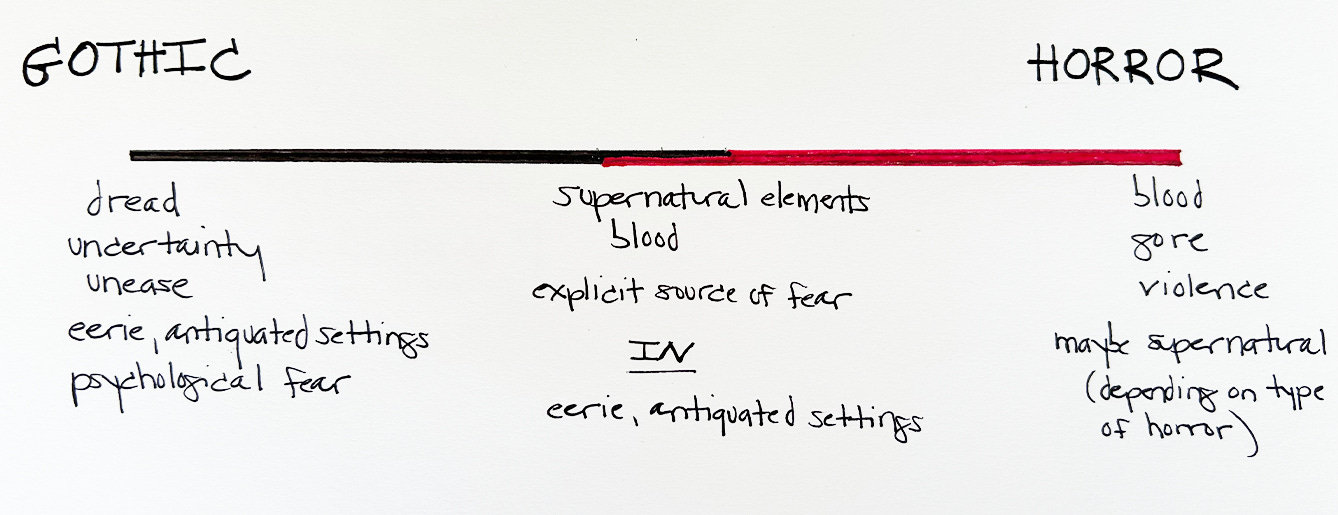 GOTHIC
HORROR
dread
undertainty
unease
eerie, antiquated settings
psychological fear
supernatural elements
blood
explicit source of fear
IN
eerie, antiquated settings
blood
gore
violence
maybe supernatural
(depending on type
of horror)